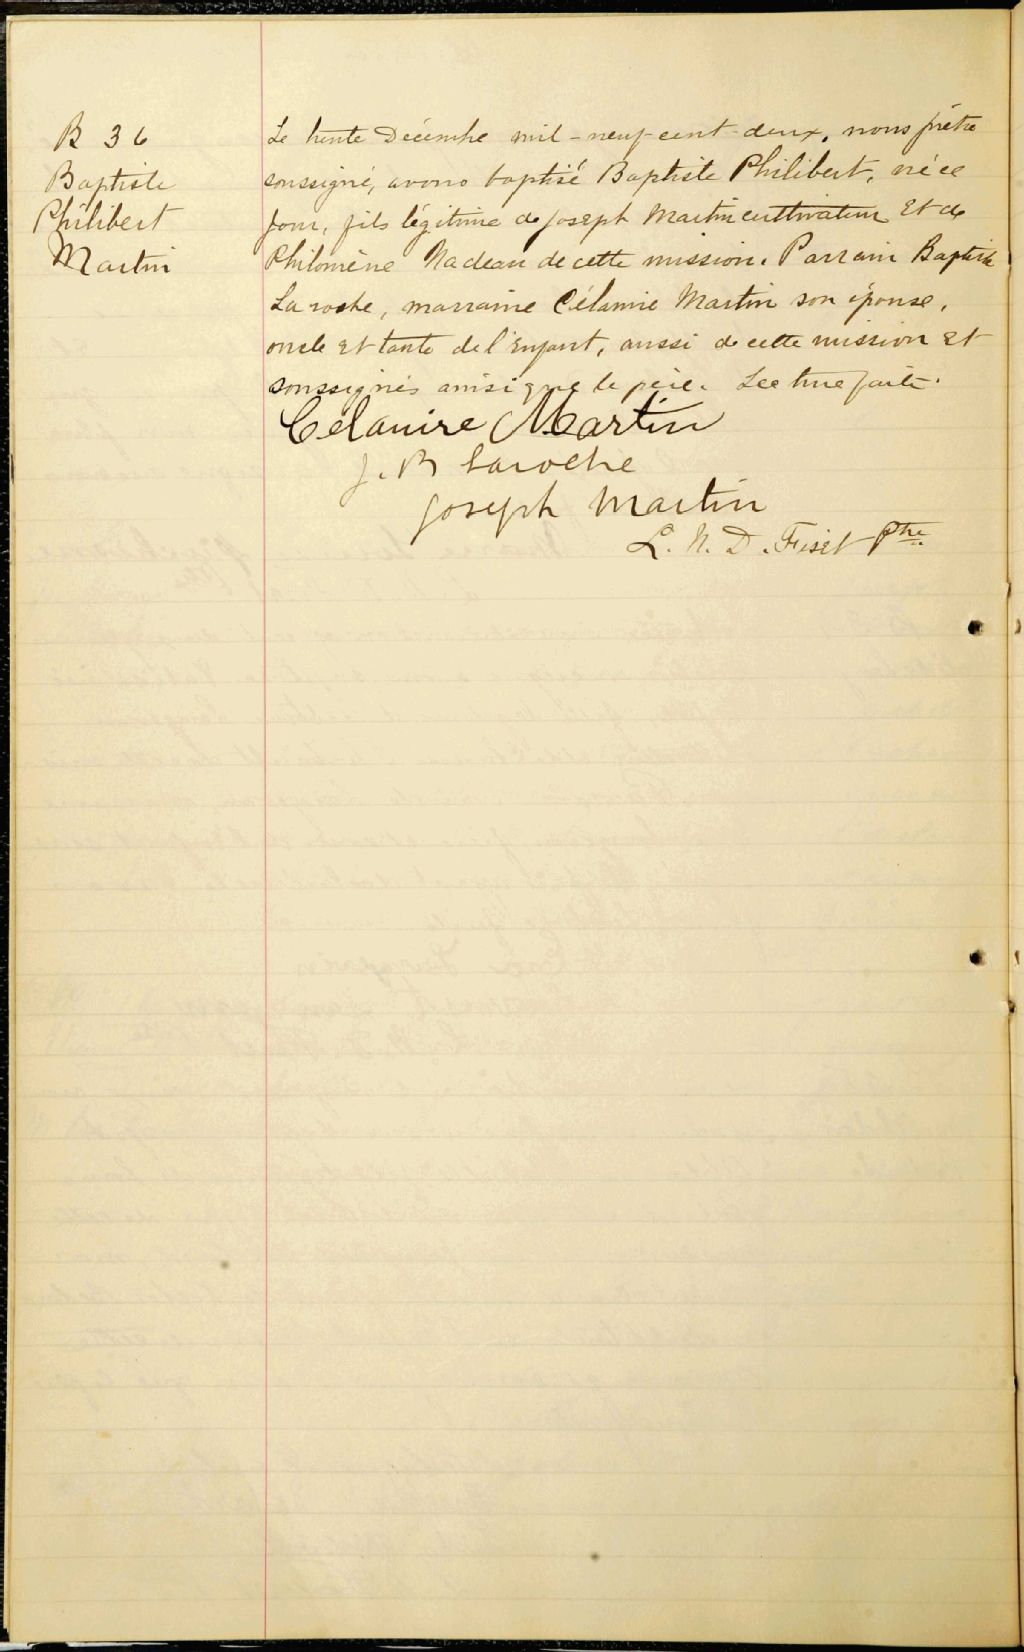 B 36
Baptiste
Philibert
Martin
Le trente Décembre mil-neuf-cent-deux, nous prêtre
soussigné, avons baptisé Baptiste Philibert, né ce
jour, fils légitime de Joseph Martin cultivateur Et de
Philomène Nadeau de cette mission. Parrain Baptiste
Laroche, marraine Célanie Martin son épouse,
oncle Et tante de l'Enfant, aussi de cette mission Et
soussignés ainsi que le père. Lecture faite.
Célanire Martin
J. B Laroche
Joseph Martin
L. N. D. Fiset Ptre